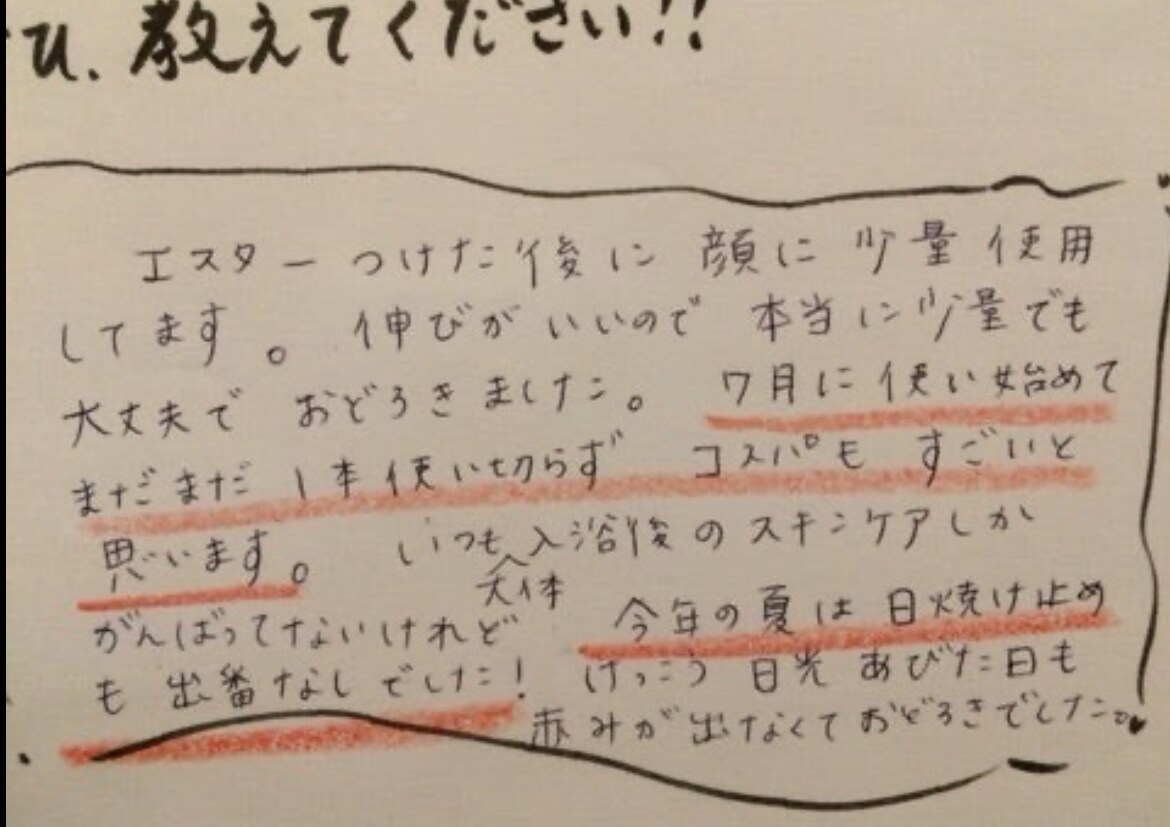 ひ、教えてください!!
エスターつけた後に 顔に 少量使用
してます。 伸びがいいので 本当に少量でも
大丈夫で おどろきました。 7月に使い始めて
まだまだ 1本使い切らず コスパも すごいと
思います。 いつも入浴後のスキンケアしか
大体
がんばってないけれど 今年の夏は 日焼け止め
も 出番なしでした! けっこう 日光 あびた日も
赤みが出なくておどろきでした。